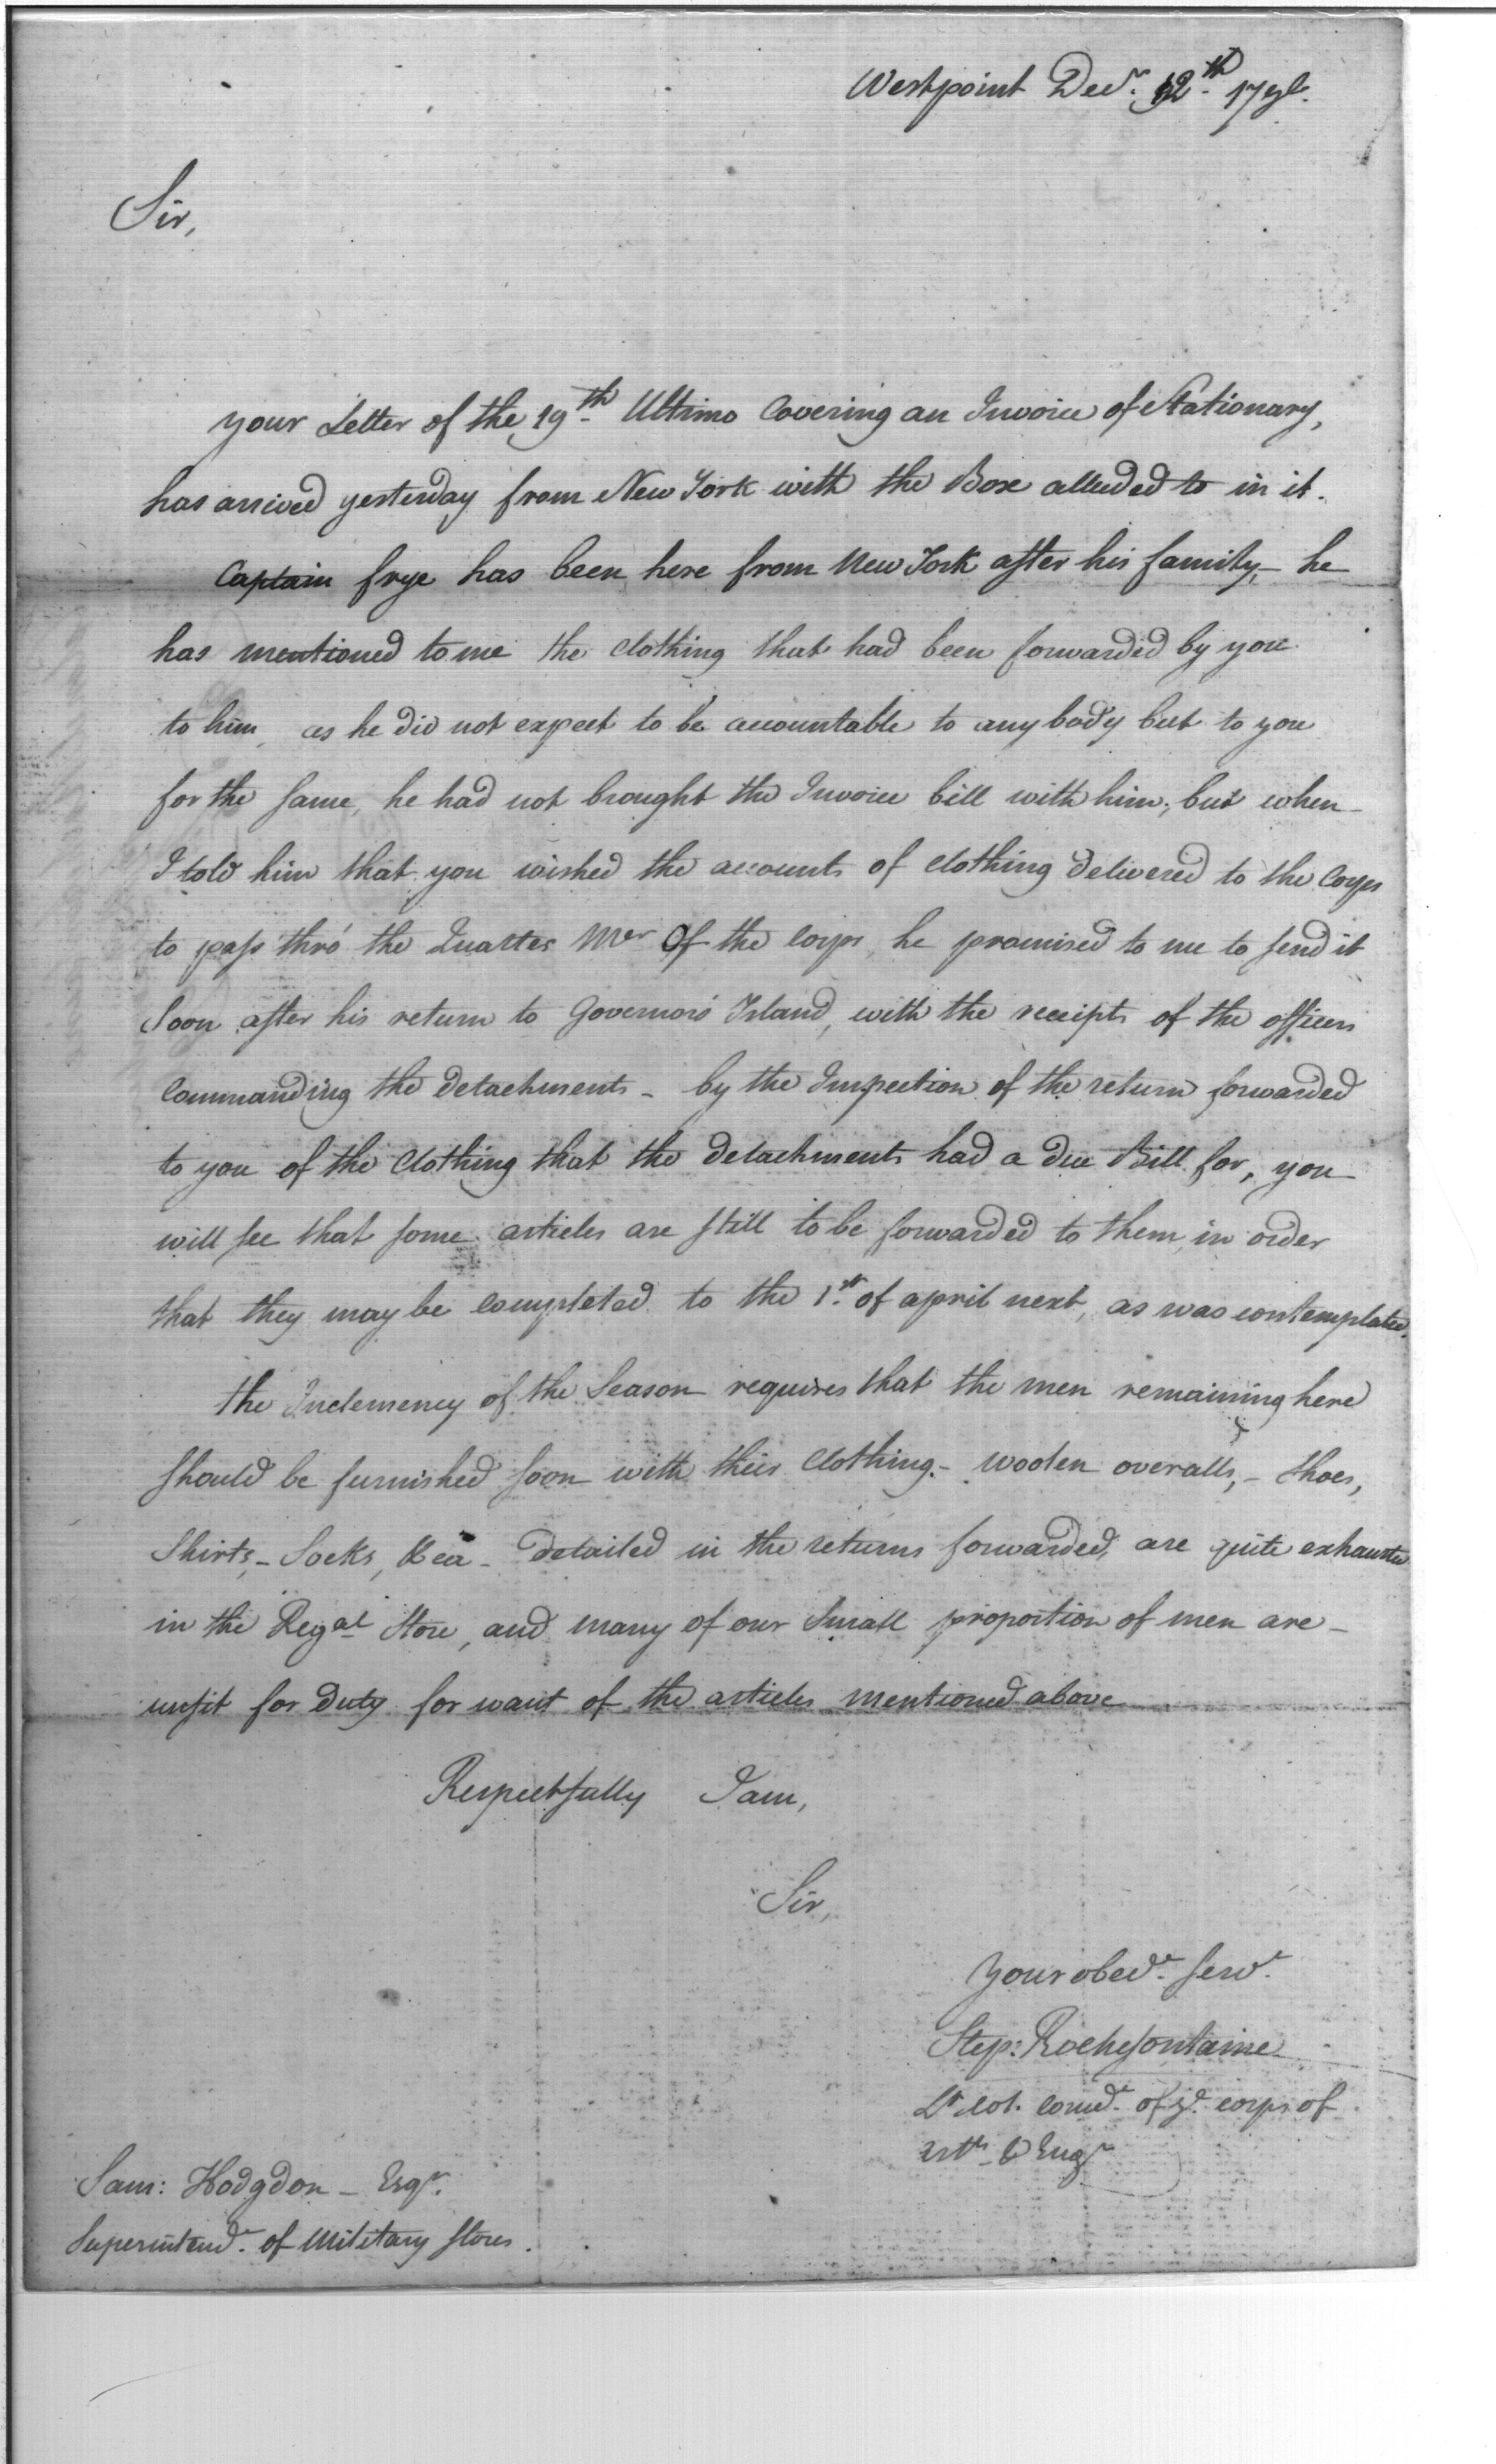 Westpoint Decr. 12th 1796.
Sir,
your Letter of the 19th Ultimo Covering an Invoice of Stationary,
has arrived yesterday from New York with the Box alluded to in it.
Captain frye has been here from New York after his family,- he
has mentioned to me the clothing that had been forwarded by you
to him, as he did not expect to be accountable to any body but to you
for the same, he had not brought the Invoice bill with him; but when
I told him that you wished the accounts of clothing delivered to the Corps
to pass thro' the Quarter Mer Of the corps, he promised to me to send it
Soon after his return to Governors Island, with the receipts of the officers
Commanding the detachments - by the Inspection of the return forwarded
to you of the Clothing that the detachments had a due Bill for, you
will see that some articles are still to be forwarded to them in order
that they may be completed to the 1st of april next, as was contemplated.
the Inclemency of the Season requires that the men remaining here
should be furnished soon with their Clothing.- woolen overalls,- shoes,
Shirts,- Socks, &ca - detailed in the returns forwarded, are quite exhausted
in the Regal Store, and many of our Small proportion of men are -
unfit for duty for want of the articles mentioned above
Respectfully I am,
Sir,
your obedt. servt.
Step: Rochefontaine
Lt Col. Comdt. of ye. corps of
Arts & Engrs
Sam: Hodgdon - Esqr.
Superintendt. of Military stores.